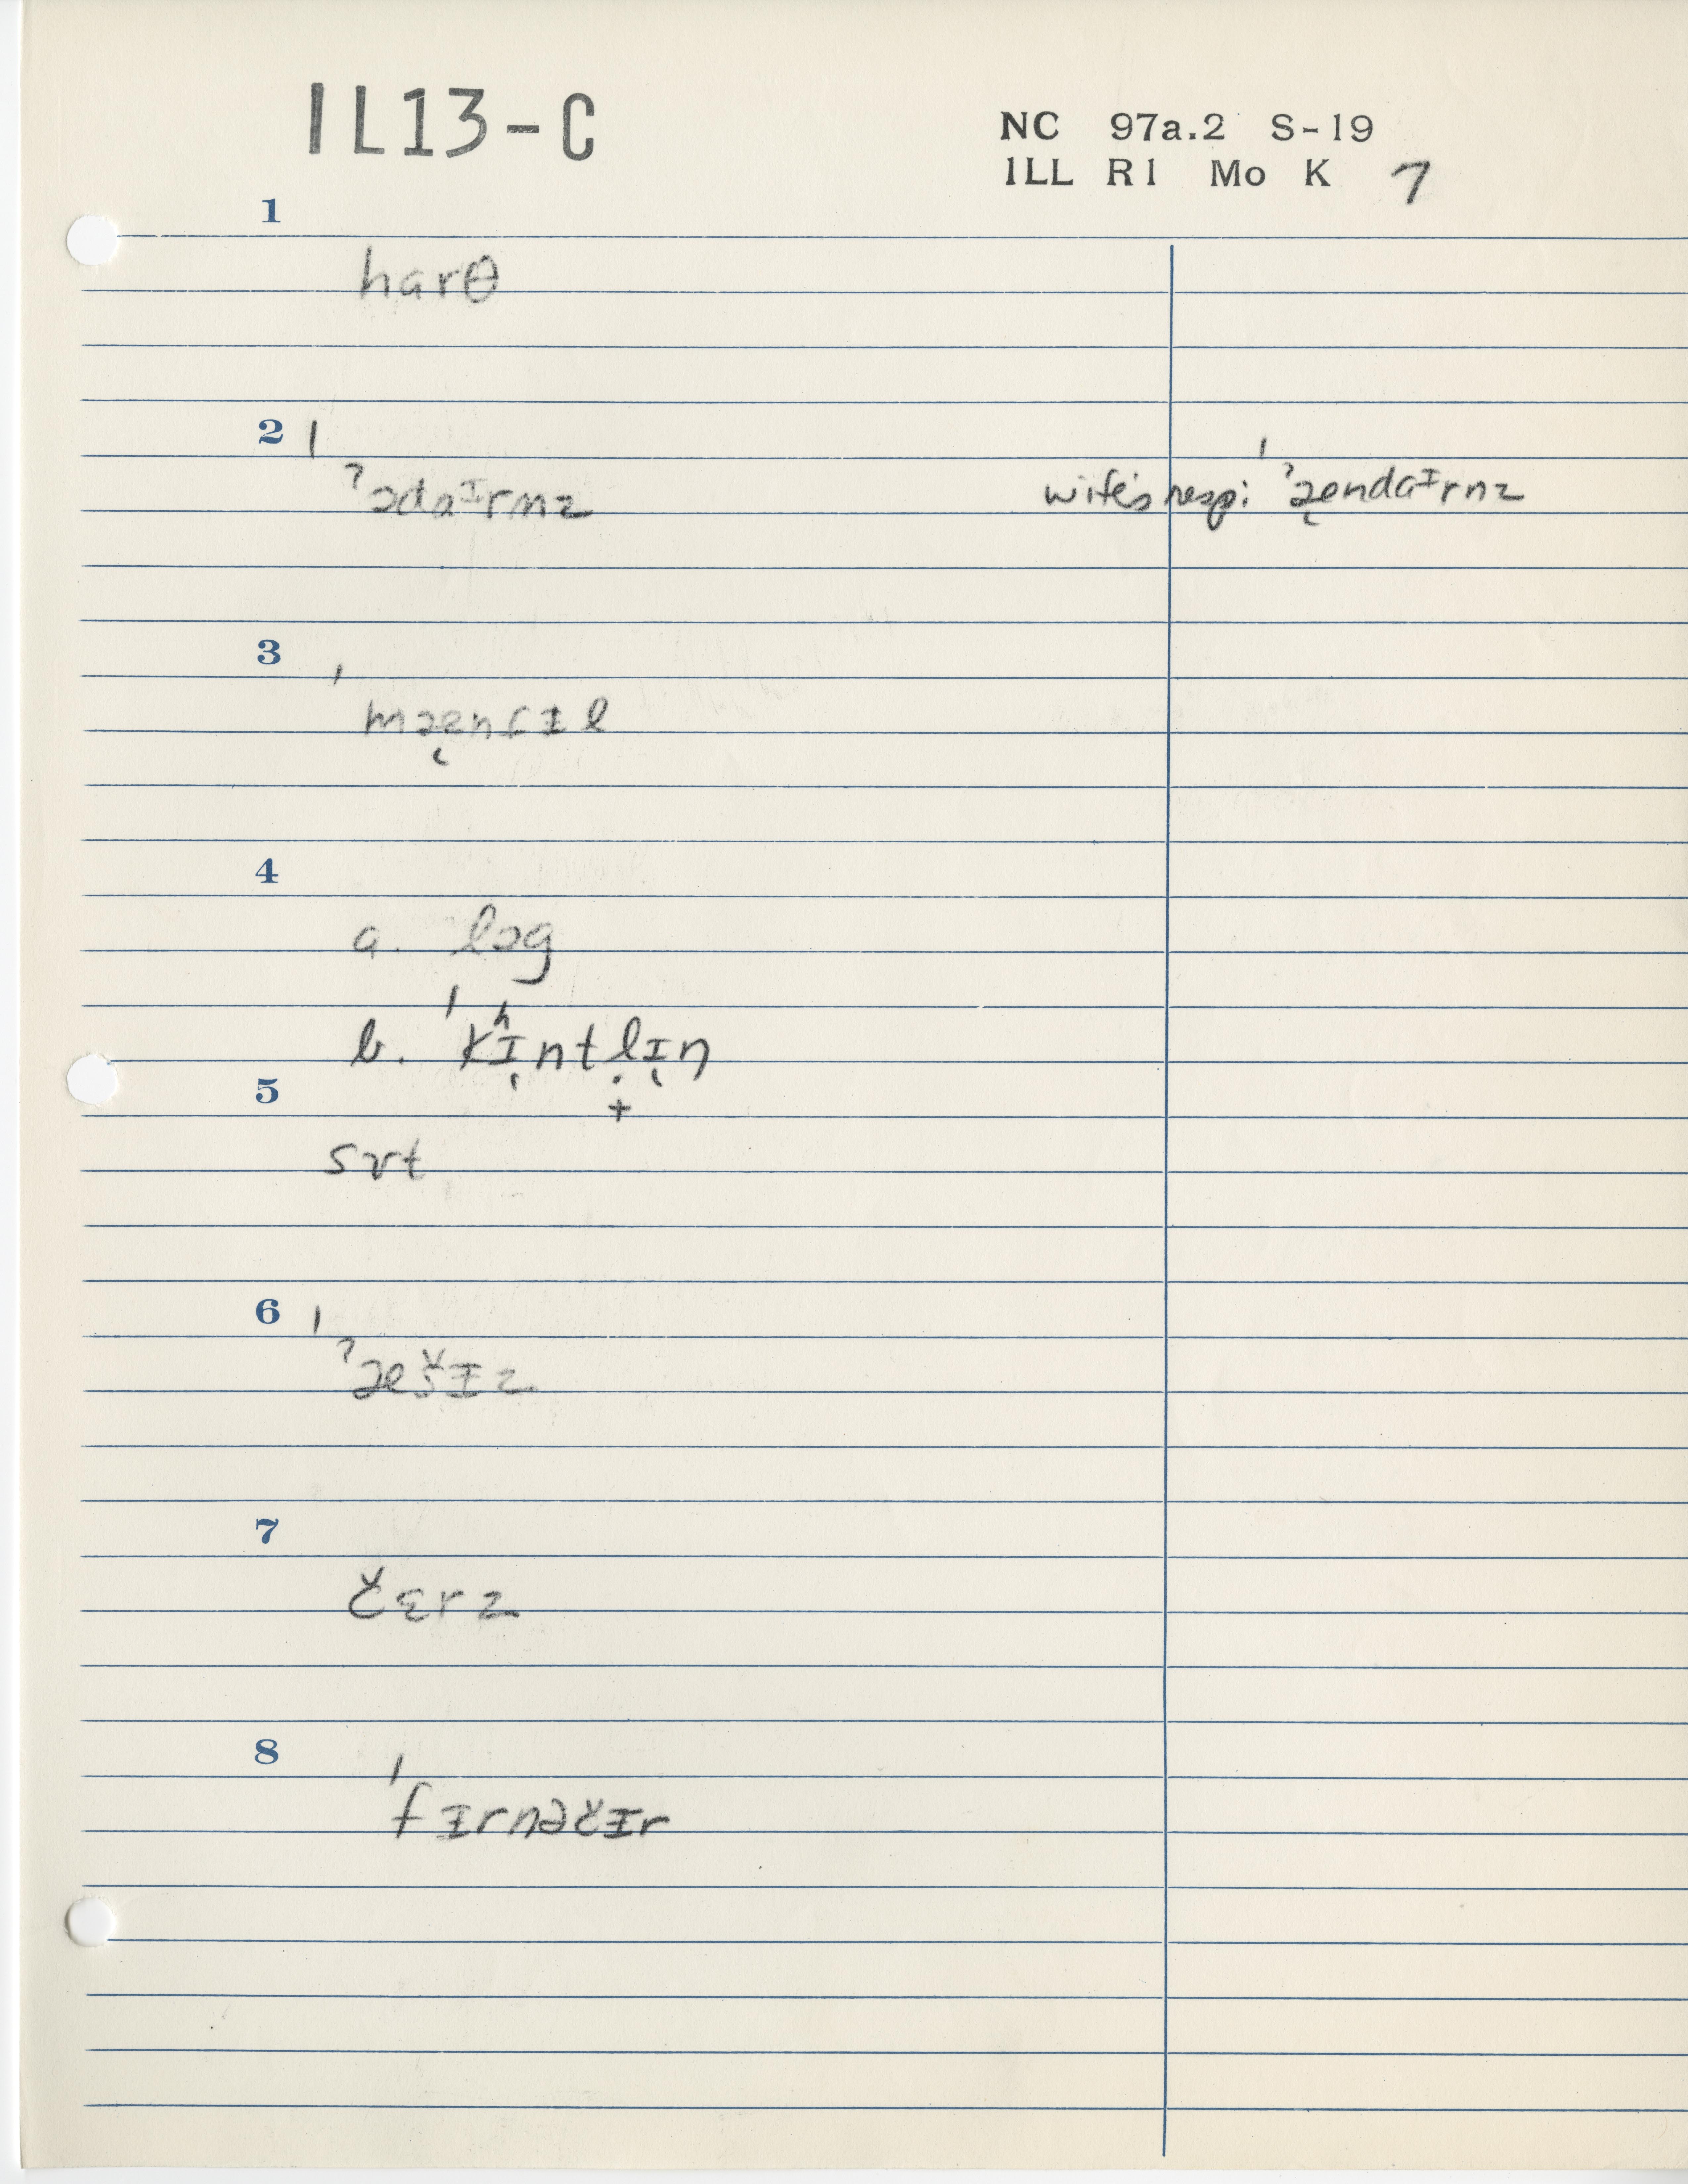 IL13-C
NC 97a.2 S-19
ILL R1 Mo K 7
1
harθ
2
ˈˀɔdaᶦrnz wife's resp: ˈˀæ̨ndaᶦrnz
3
ˈmæ̨nʃɪl
4
a. lɔg
b. ˈkʰɪ̨ntlɪ̨n
+
5
sʌt
6
ˈˀæšɪz
7
čɛrz
8
ˈfɪrnəčɪr